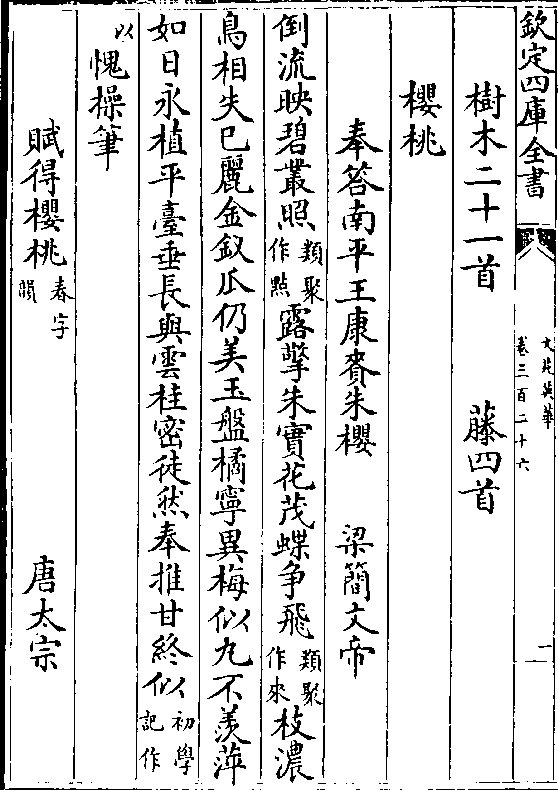 欽定四庫全書
文苑英華
卷三百二十六
二
樹木二十一首 藤四首
櫻桃
奉答南平王康賚朱櫻 梁簡文帝
倒流映碧叢照類聚作點露擎朱實花茂蝶争飛類聚作來枝濃
鳥相失已麗金釵瓜仍美玉盤橘寧異梅似丸不羨萍
如日永植平臺垂長與雲桂密徒然奉推甘終似初學記作
以愧操筆
賦得櫻桃春字韻 唐太宗